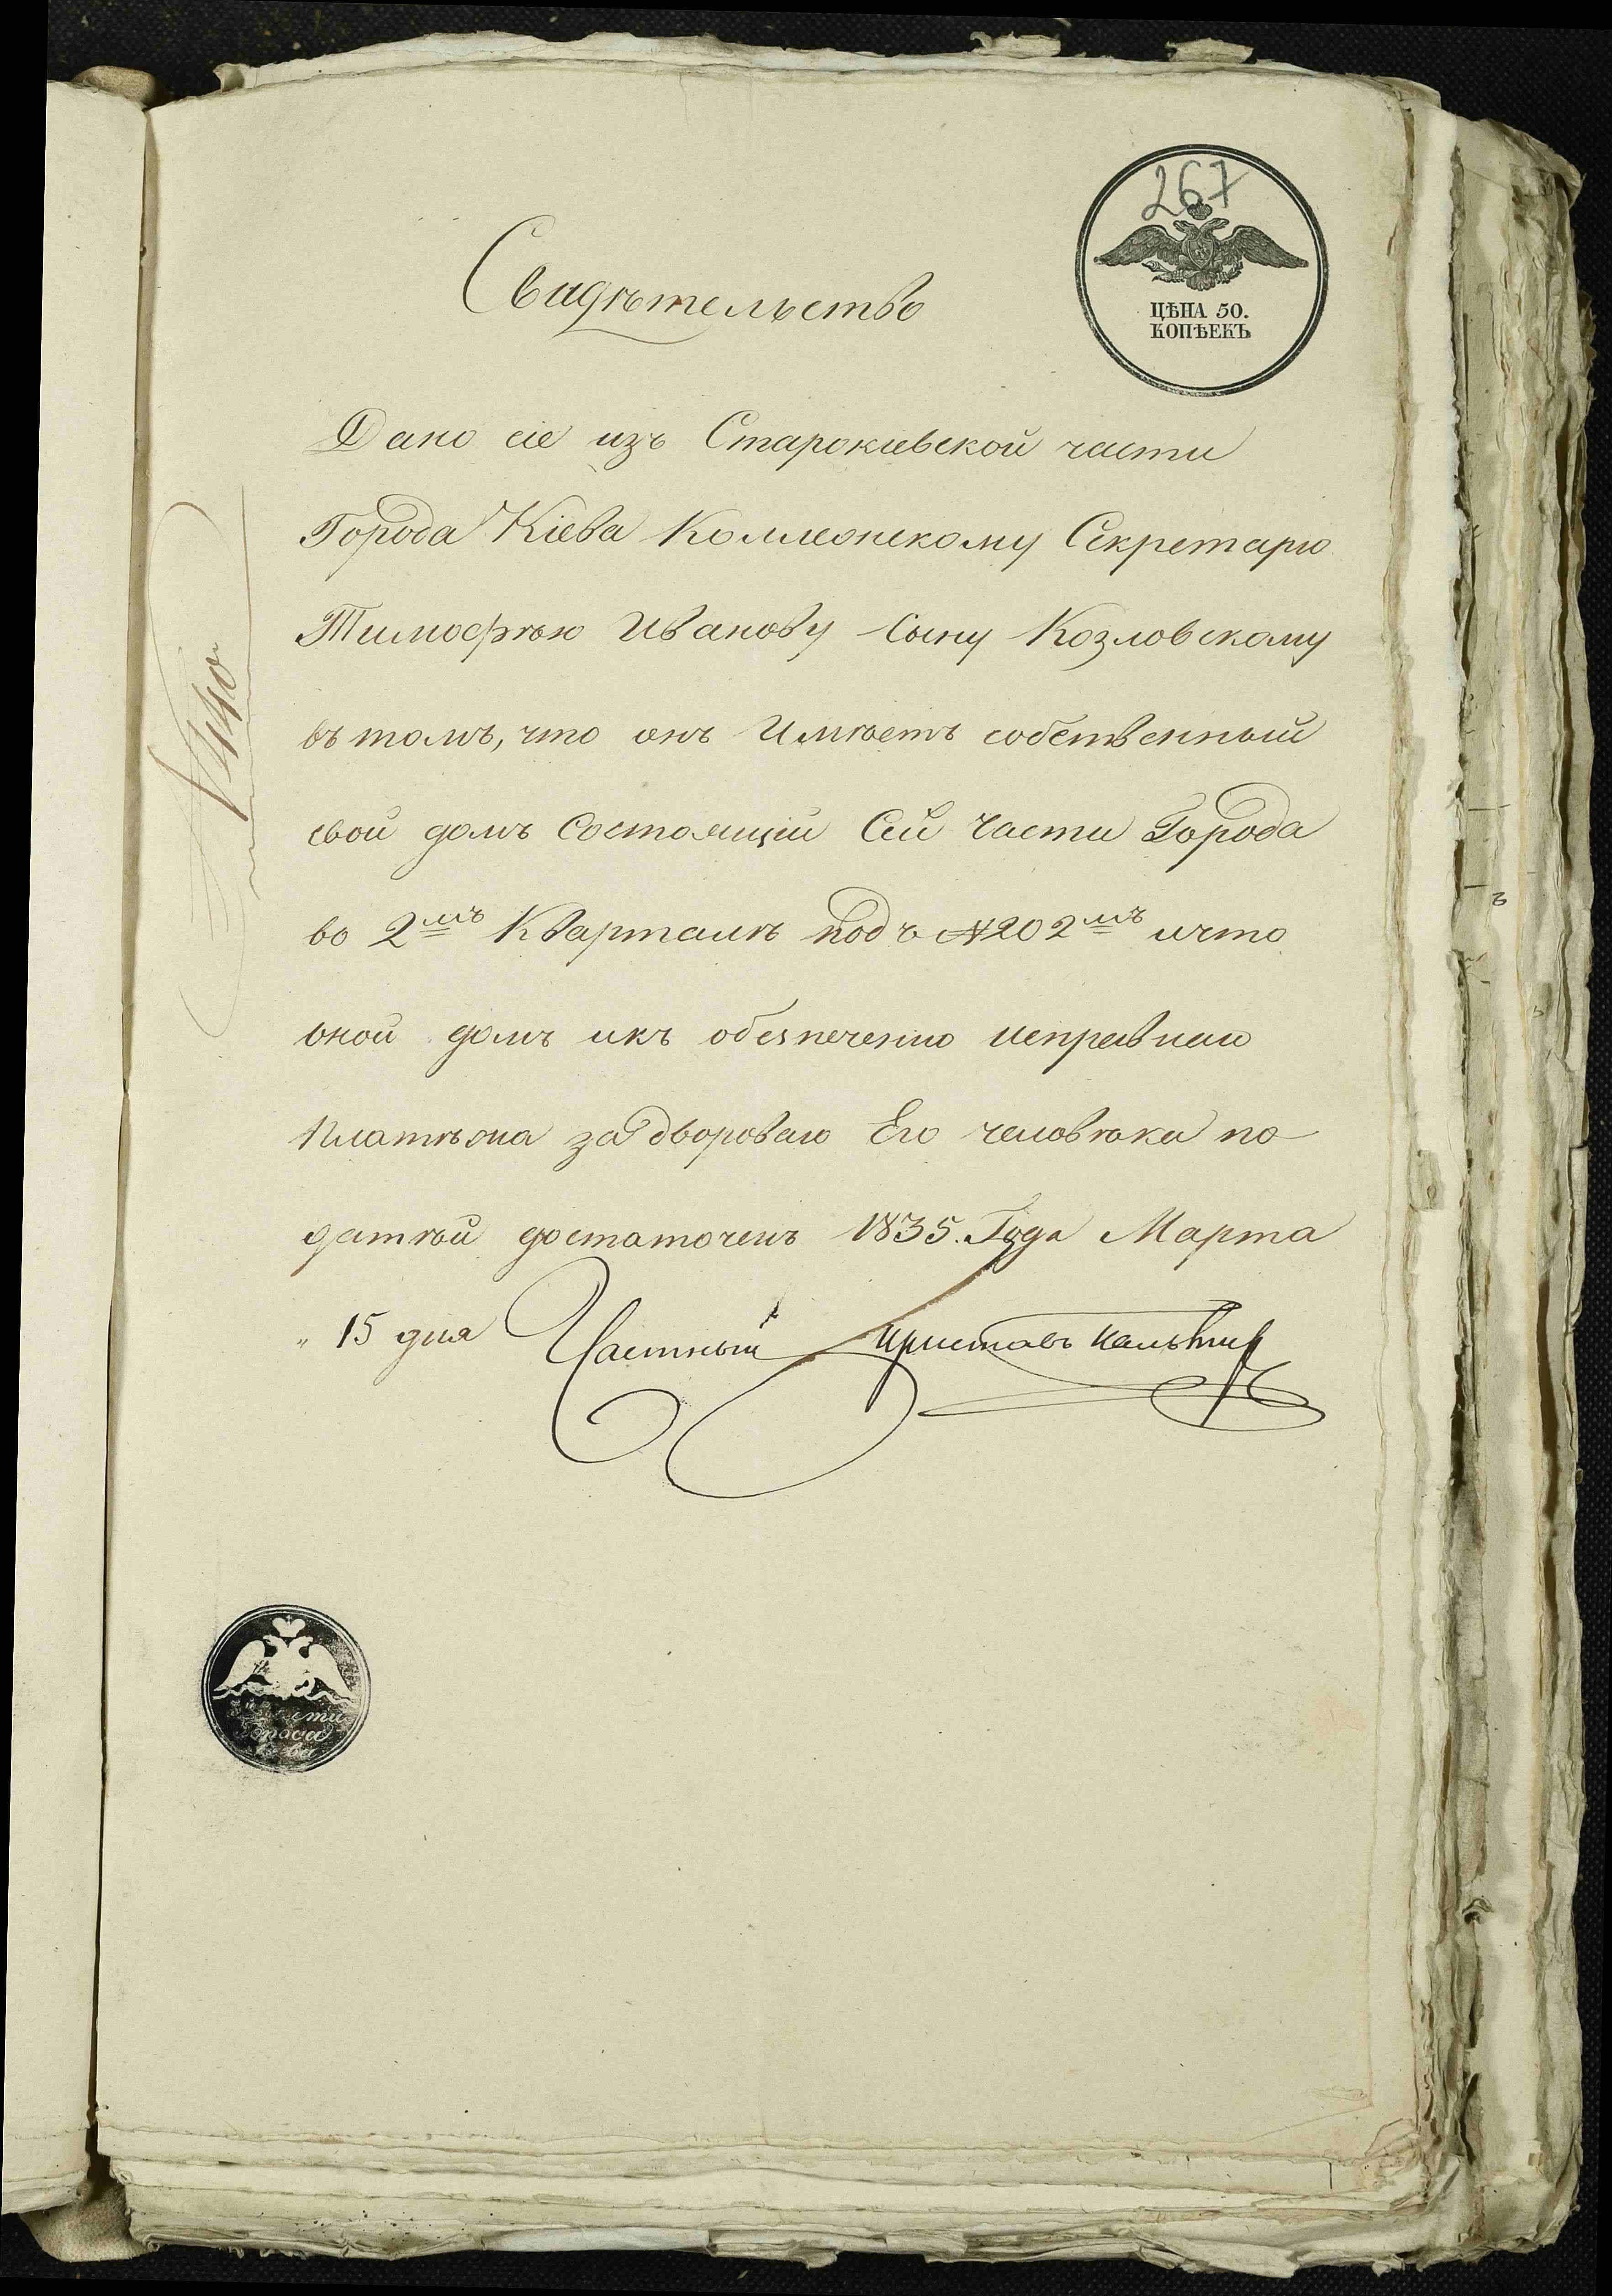 267
ЦѢНА 50.
КОПѢЕКЪ
Свидѣтельство
Дано сіе изъ Старокіевской части
Города Кіева Коллежскому Секретарю
Тимофѣю Иванову сыну Козловскому
въ томъ, что онъ Имѣетъ собственный
свой домъ Состоящій Сей Части Города
во 2мъ Кварталѣ подъ № 202мъ ичто
оной домъ икъ обезпеченію исправнаго
платѣжа за двороваго Его человѣка по-
датѣй достаточенъ 1835. Года Марта
„ 15 дня Частный приставъ